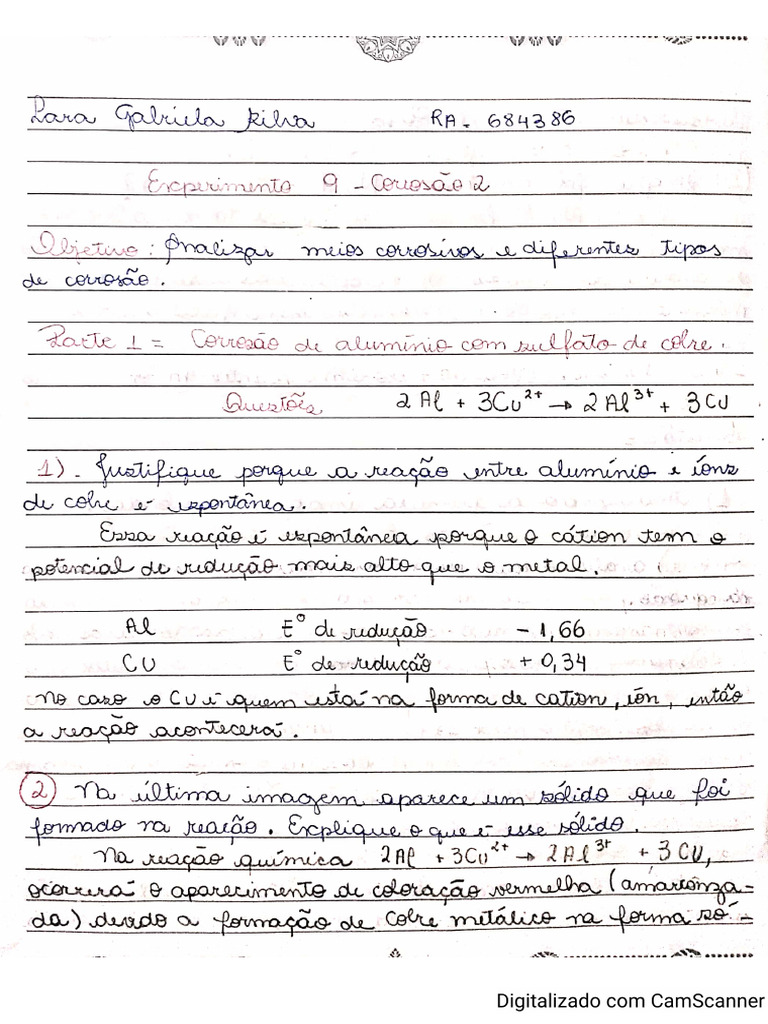 Lara Gabriela Silva RA. 684386
Experimento 9 - Corrosão 2
Objetivo: Analizar meios corrosivos e diferentes tipos
de corrosão.
Parte 1 = Corrosão de alumínio com sulfato de cobre.
Questões 2Al + 3Cu²⁺ → 2Al³⁺ + 3Cu
1). Justifique porque a reação entre alumínio e íons
de cobre é espontânea.
Essa reação é espontânea porque o cátion tem o
potencial de redução mais alto que o metal.
Al E° de redução - 1,66
Cu E° de redução + 0,34
No caso o Cu é quem está na forma de cation, íon, então
a reação acontecerá.
2 Na última imagem aparece um sólido que foi
formado na reação. Explique o que é esse sólido.
Na reação química 2Al + 3Cu²⁺ → 2Al³⁺ + 3Cu,
ocorrerá o aparecimento de coloração vermelha (amarronza-
da) devido a formação de cobre metálico na forma só-
Digitalizado com CamScanner